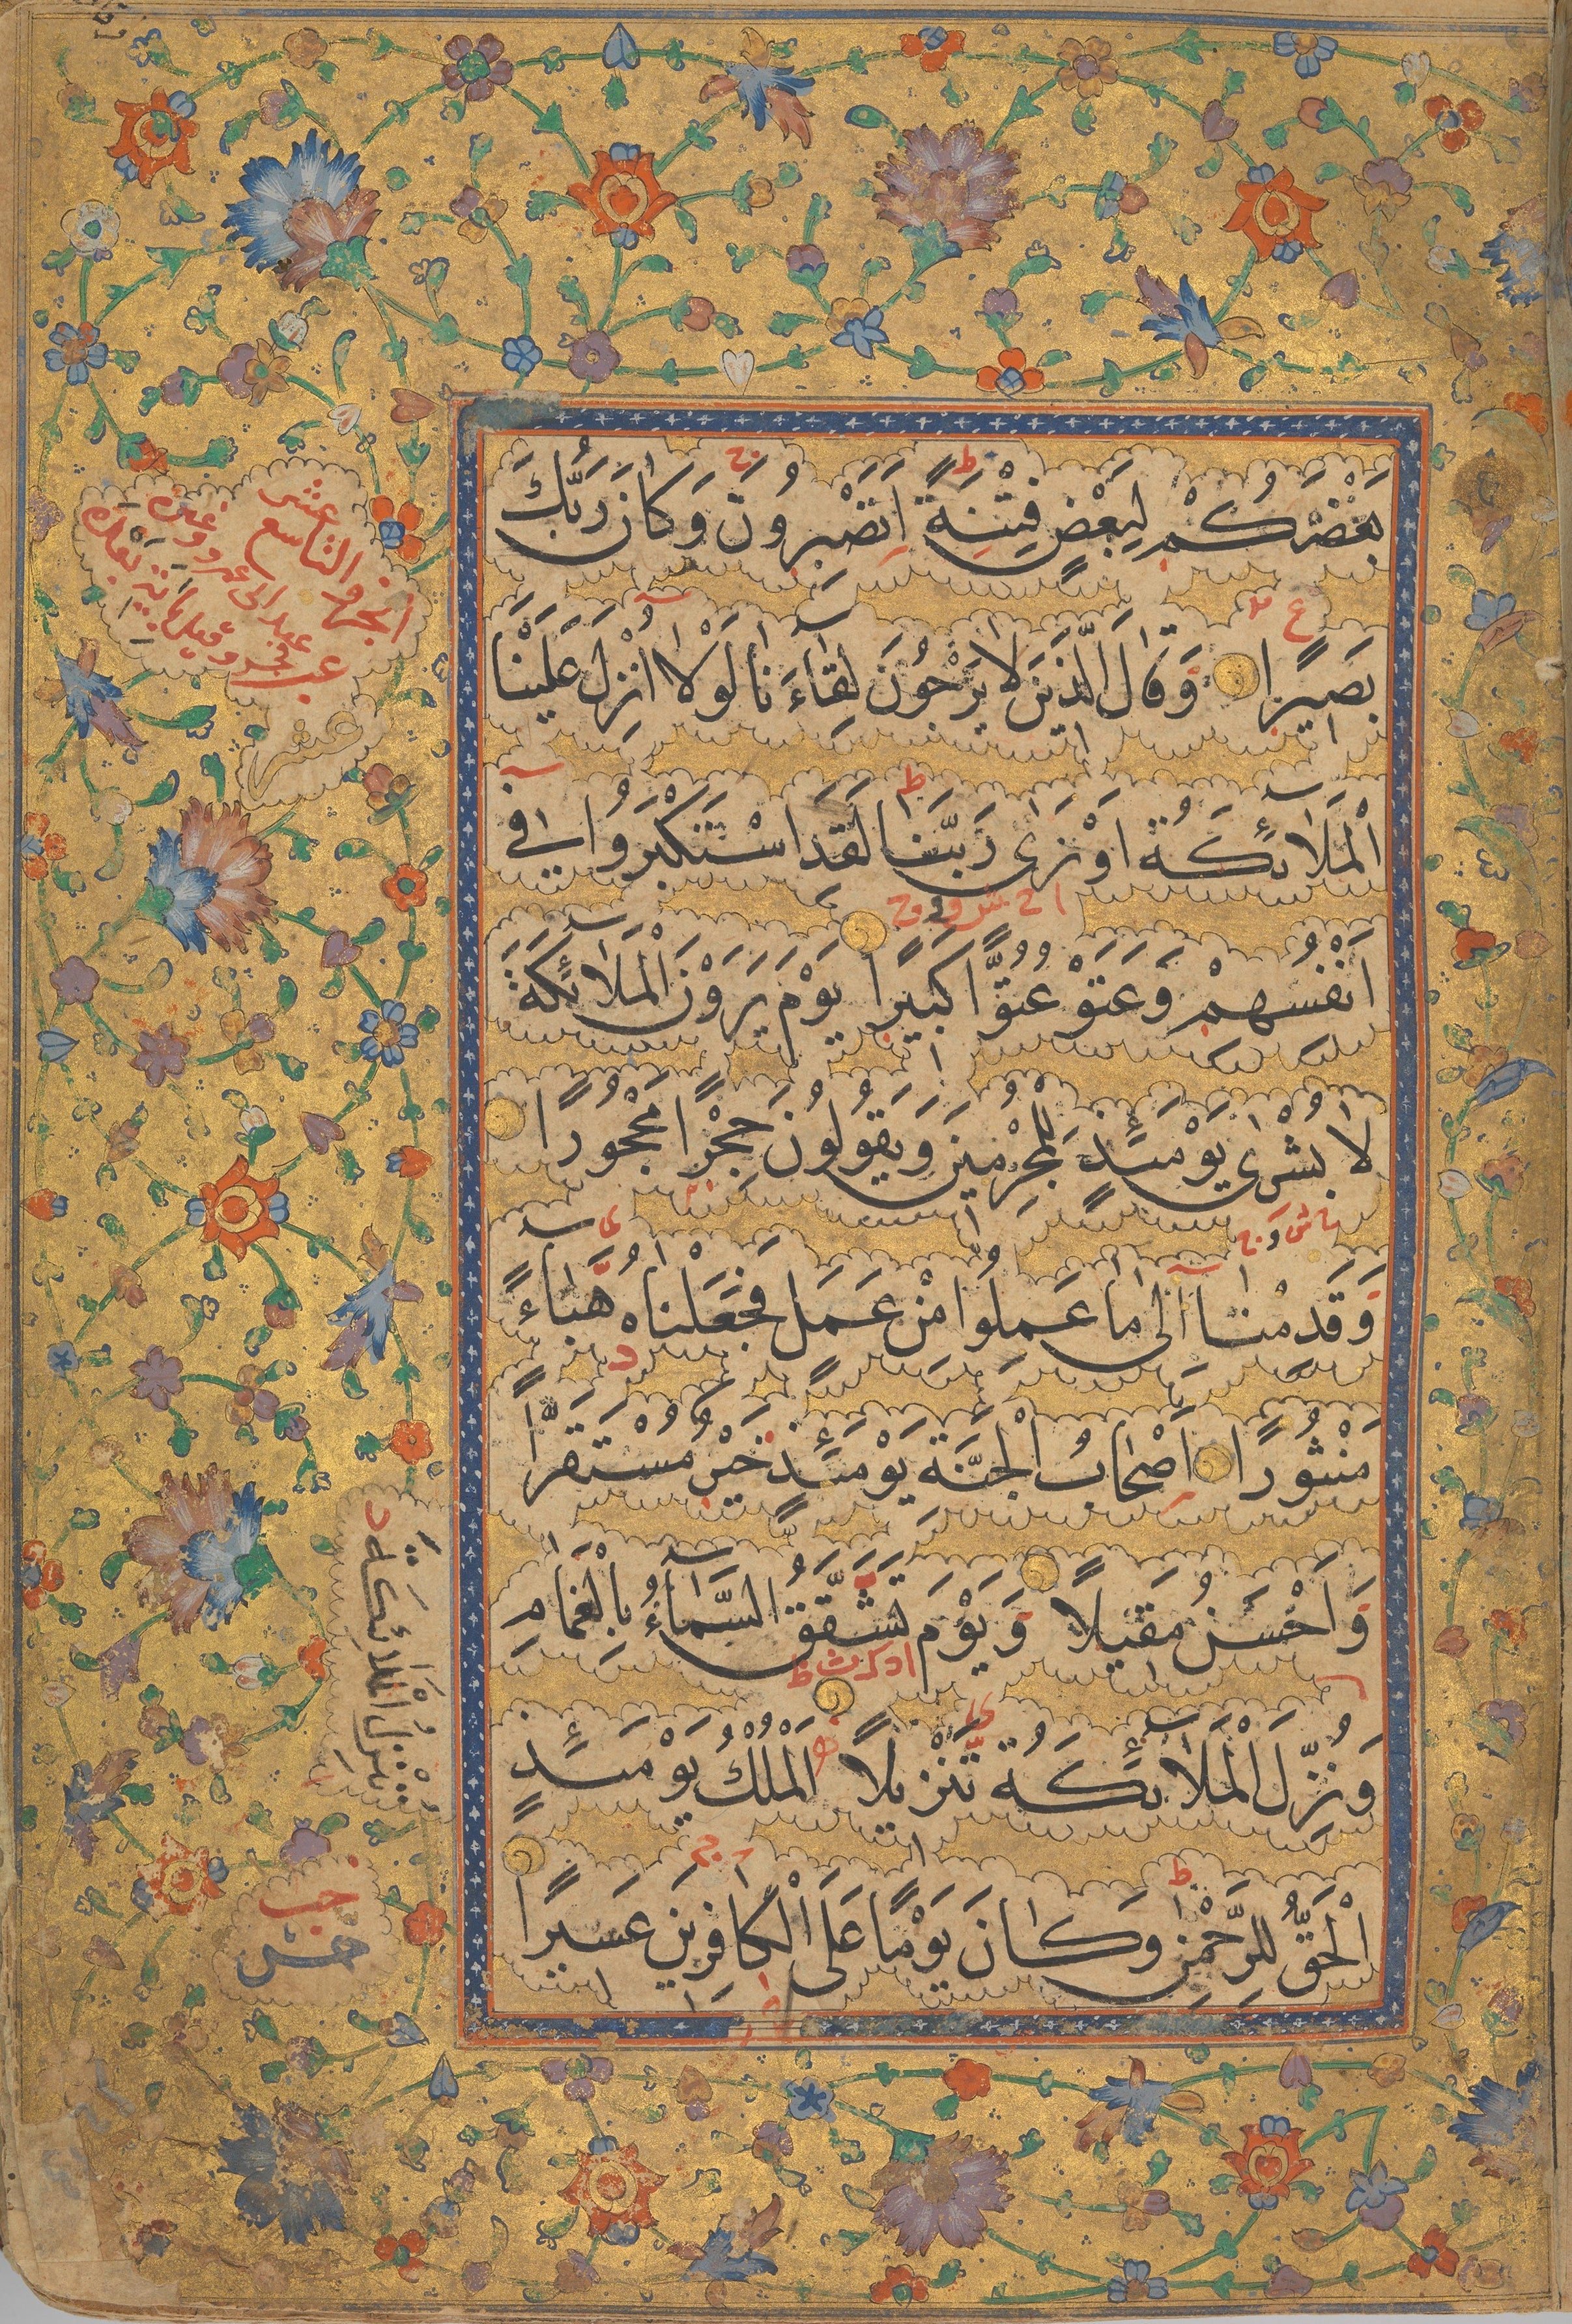 بَعْضَكُمْ لِبَعْضٍ فِتْنَةً ط اَتَصْبِرُونَ ج وَكَانَ رَبُّكَ
بَصِيرًا ع وَقَالَ الَّذِينَ لَا يَرْجُونَ لِقَاءَنَا لَوْلَا أُنْزِلَ عَلَيْنَا
الْمَلَائِكَةُ اَوْ نَرَى رَبَّنَا ط لَقَدِ اسْتَكْبَرُوا فِي
اَنْفُسِهِمْ وَعَتَوْ عُتُوًّا كَبِيرًا يَوْمَ يَرَوْنَ الْمَلَائِكَةَ
لَا بُشْرَى يَوْمَئِذٍ لِلْمُجْرِمِينَ وَيَقُولُونَ حِجْرًا مَحْجُورًا
وَقَدِمْنَا اِلَى مَا عَمِلُوا مِنْ عَمَلٍ فَجَعَلْنَاهُ هَبَاءً
مَنْثُورًا اَصْحَابُ الْجَنَّةِ يَوْمَئِذٍ خَيْرٌ مُسْتَقَرًّا
وَاَحْسَنُ مَقِيلًا وَيَوْمَ تَشَقَّقُ السَّمَاءُ بِالْغَمَامِ
وَنُزِّلَ الْمَلَائِكَةُ تَنْزِيلًا الْمُلْكُ يَوْمَئِذٍ
الْحَقُّ لِلرَّحْمٰنِ ط وَكَانَ يَوْمًا عَلَى الْكَافِرِينَ عَسِيرًا
الجزو التاسع عشر
عشر
وَنُنْزِلُ الْمَلَائِكَةَ د
حب
خمس